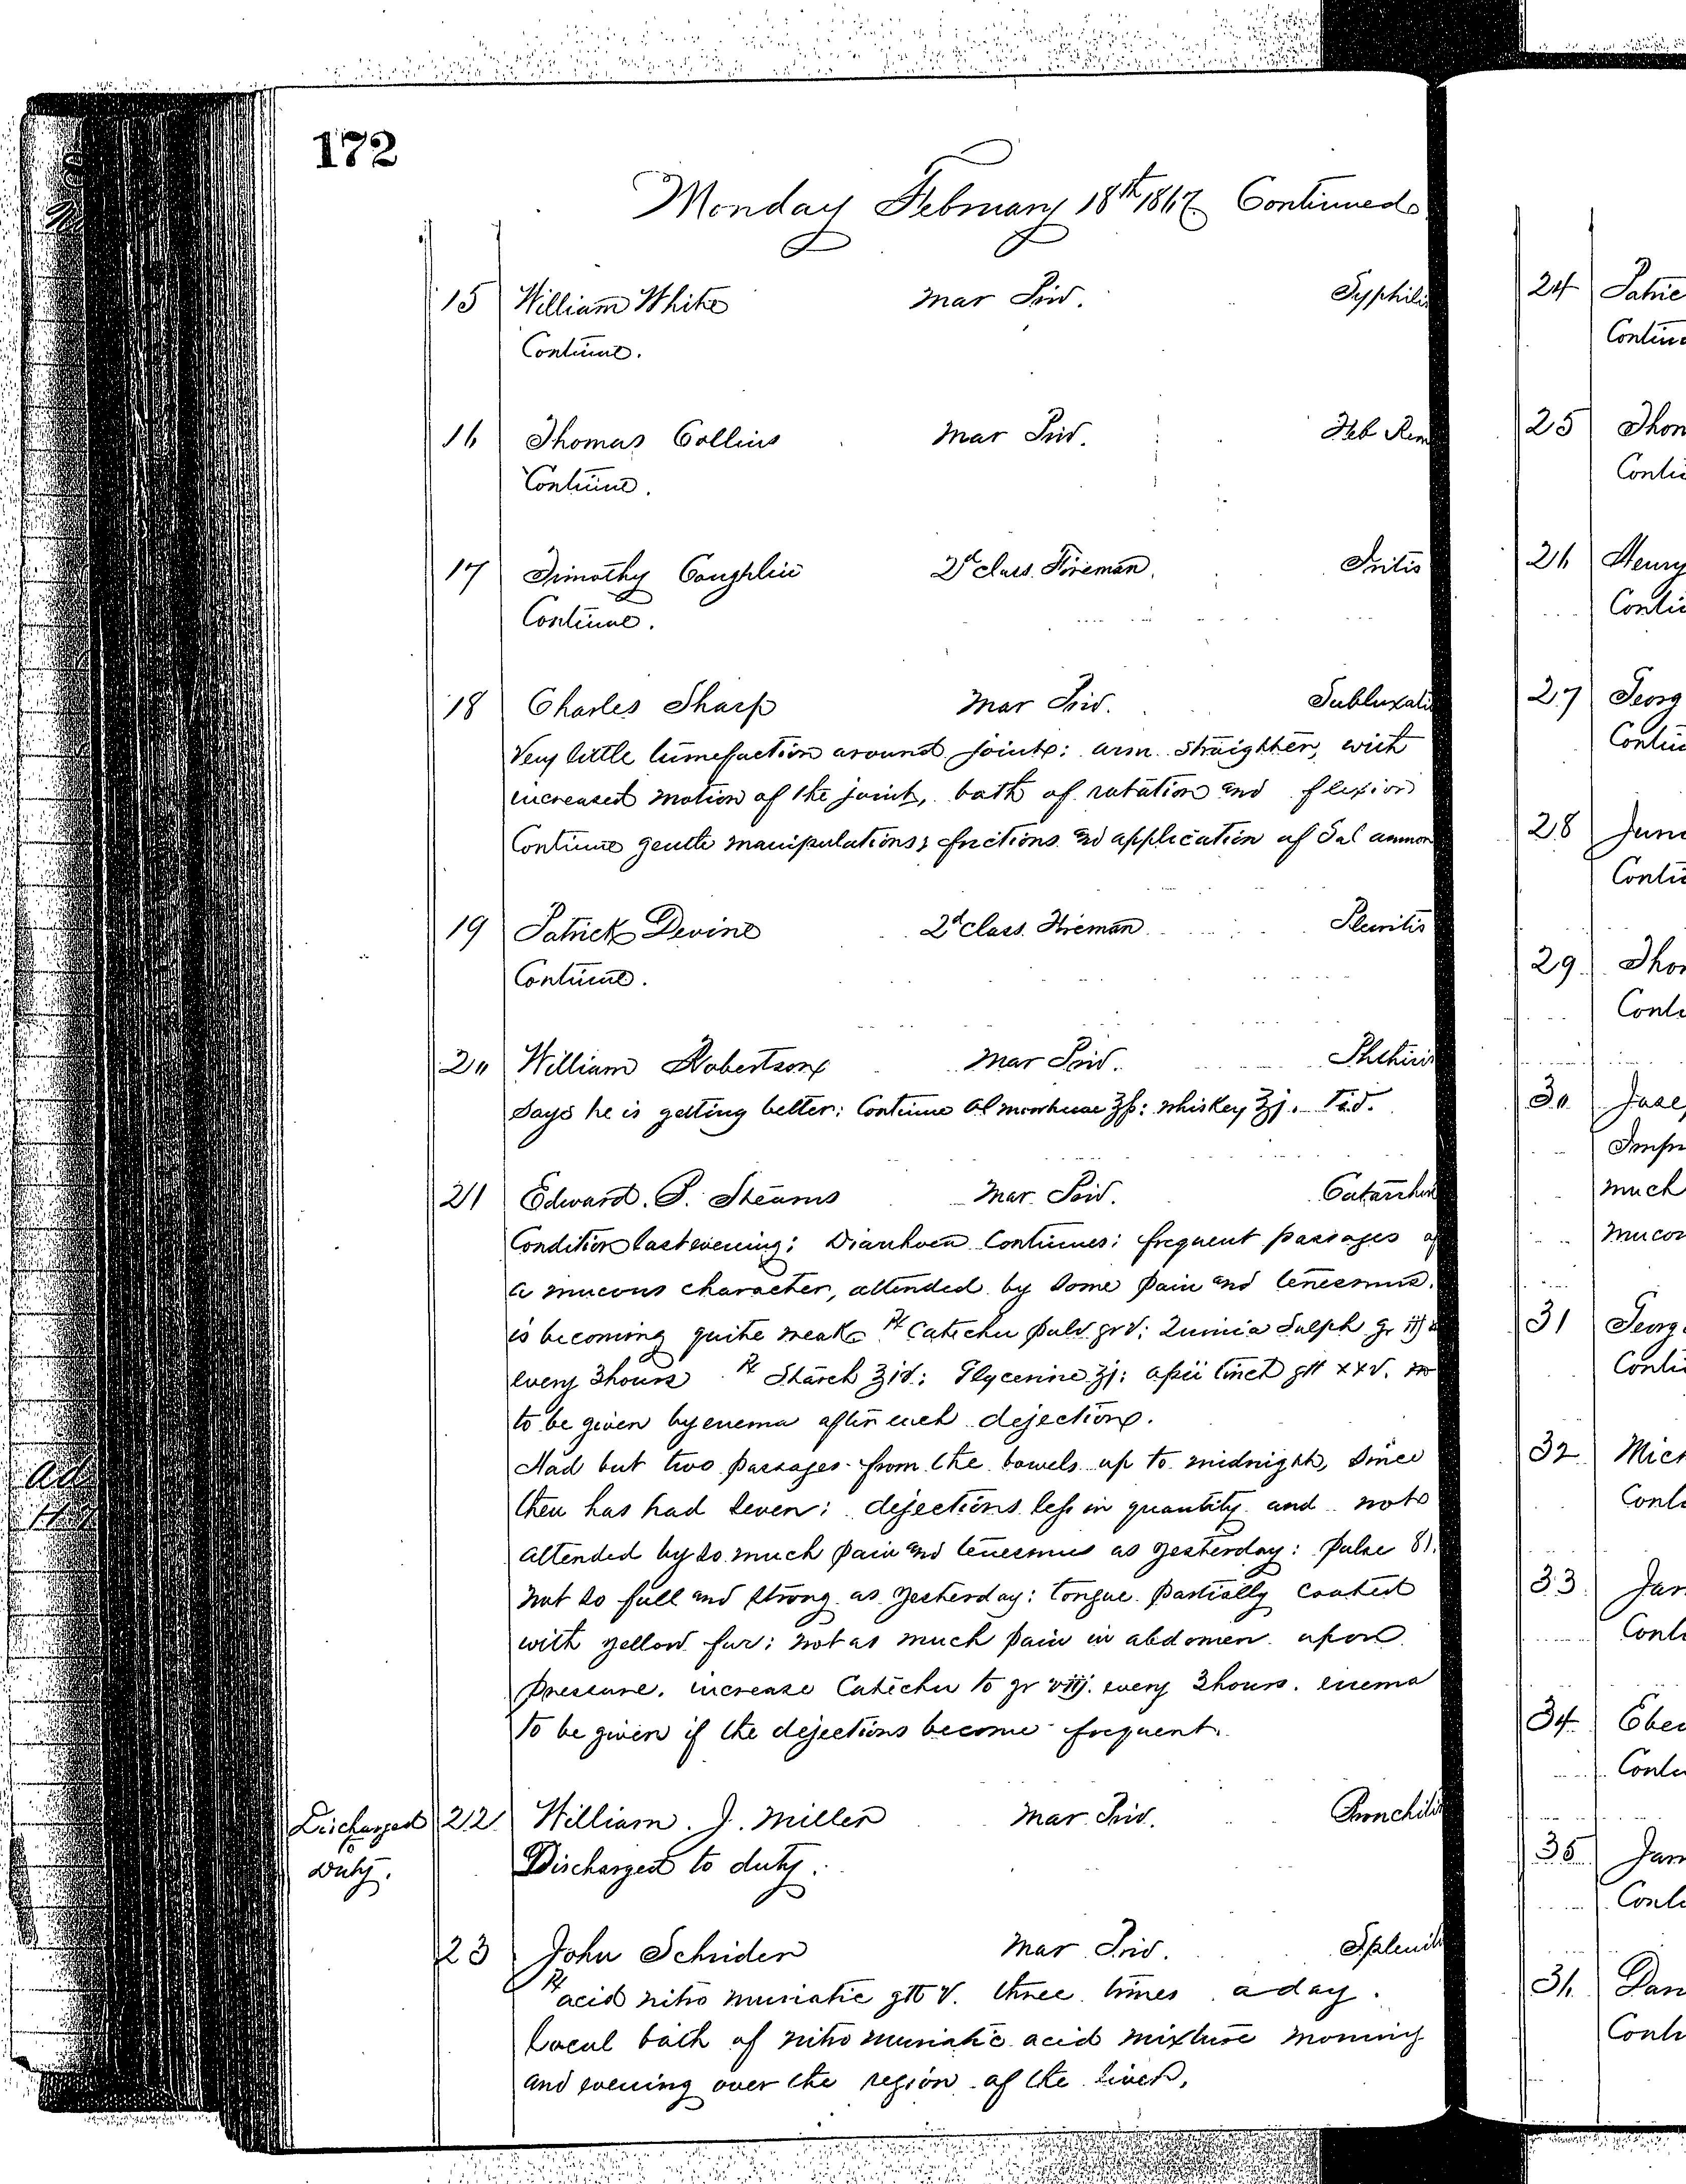 172
Monday February 18th 1867 Continued
15 William White Mar Priv. Syphili
Continue.
16 Thomas Collins Mar Priv. Feb Rem
Continue.
17 Timothy Coughlin 2d class Fireman. Iritis
Continue.
18 Charles Sharp Mar Priv. Subluxati
Very little tumefaction around joint: arm straighter, with
increased motion of the joint, both of rotation and flexion
Continue gentle manipulations; frictions and application of Sal ammon
19 Patrick Devine 2d class Fireman Pleuritis
Continue.
20 William Robertson Mar Priv. Phthisis
Says he is getting better: Continue Ol morrhuae ʒfs: whiskey ʒj. T.i.d.
21 Edward. P. Stearns Mar. Priv. Catarrhus
Condition last evening: Diarrhoea Continues: frequent passages of
a mucous character, attended by some pain and tenesmus.
is becoming quite weak ℞ Catechu pulv gr v: Quinia Sulph gr iij
every 3 hours ℞ Starch ʒiv: Glycerine ʒj: opii tinct gtt xxv.
to be given by enema after each dejection.
Had but two passages from the bowels up to midnight, since
then has had seven: dejections less in quantity and not
attended by so much pain and tenesmus as yesterday: pulse 81.
not so full and strong as yesterday: tongue partially coated
with yellow fur: not as much pain in abdomen upon
pressure. increase Catechu to gr viij. every 3 hours. enema
to be given if the dejections become frequent.
Discharged to Duty. 22 William. J. Miller Mar Priv. Bronchitis
Discharged to duty.
23 John Schrider Mar Priv. Splenit
℞ acid nitro muriatic gtt v. three times a day.
Local bath of nitro muriatic acid mixture morning
and evening over the region of the liver.
24 Patric
Continu
25 Thom
Conti
26 Henry
Conti
27 Georg
Contin
28
Conti
29 Tho
Conti
30
Imp
much
mucou
31 Georg
Conti
32 Mic
Conti
33 Jam
Conti
34 Eben
Conti
35 Jam
Conti
36 Dan
Conti